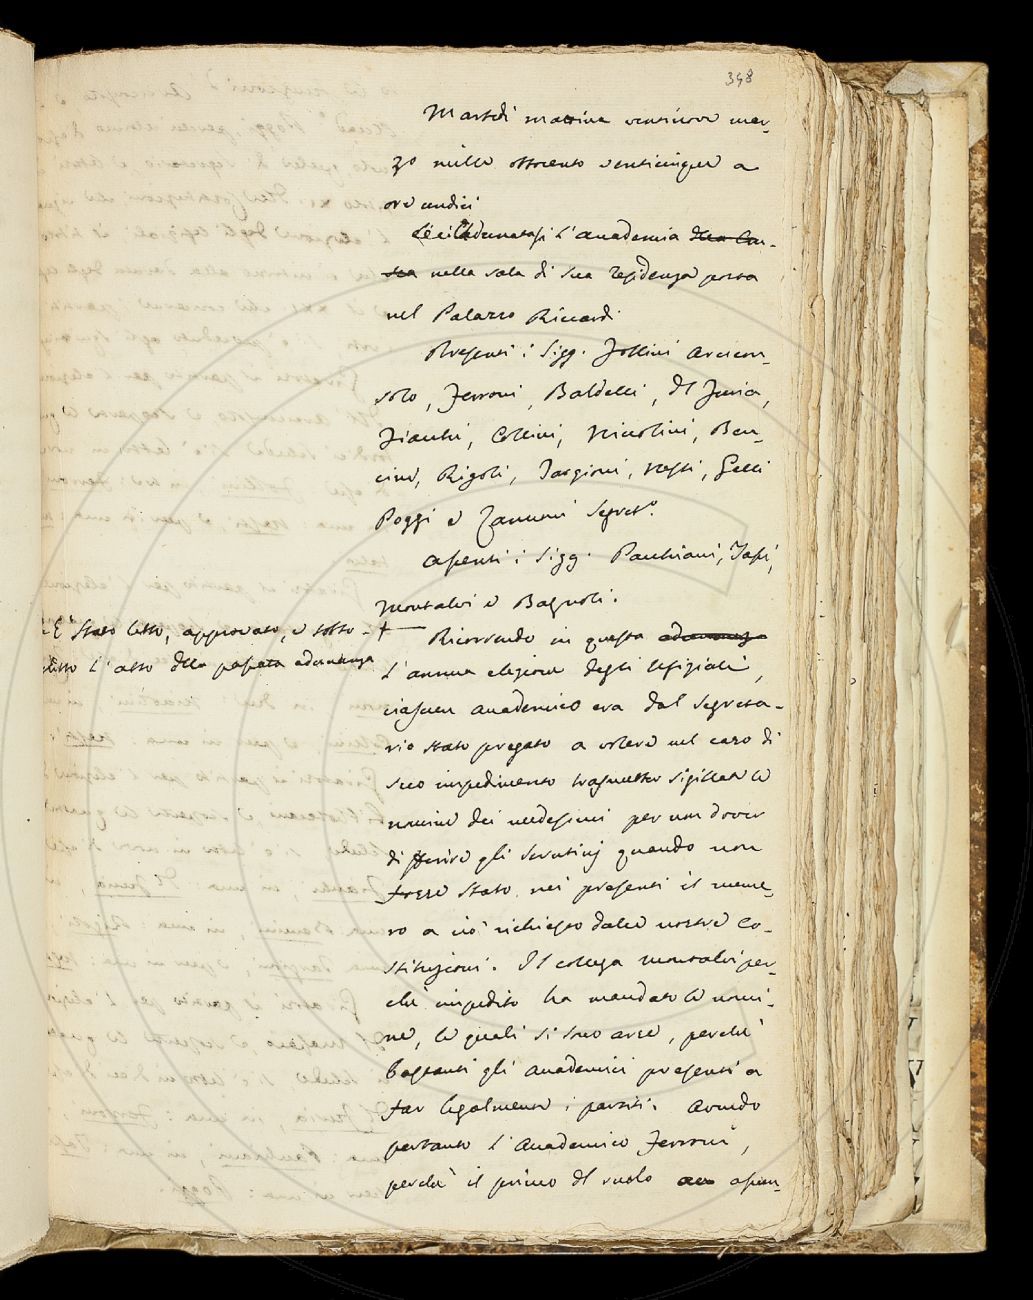 348
Martedì mattina ventinove mar-
zo mille ottocento venticinque a
ore undici
Adunatasi l'Accademia della Cru-
sca nella sala di sua residenza posta
nel Palazzo Riccardi
Presenti i Sigg. Follini Arcicon-
solo, Ferroni, Baldelli, Del Furia,
Fiacchi, Collini, Niccolini, Ben-
cini, Rigoli, Targioni, Nesti, Gelli
Poggi e Zannoni Segret.º
Assenti i Sigg. Pauchiani, Tassi,
Montalvi e Bagnoli.
E' stato letto, approvato, e sotto-
l'atto della passata adunanza
+ Ricorrendo in questa adunanza
l'annua elezione degli Ufiziali,
ciascun Accademico era dal Segreta-
rio stato pregato a volere nel caso di
suo impedimento trasmetter sigillate le
nomine dei medesimi per non dover
differire gli scrutinj quando non
fosse stato nei presenti il nume-
ro a ciò richiesto dalle nostre Co-
stituzioni. Il collega Montalvi per-
chè impedito ha mandato le nomi-
ne, le quali si sono arse, perchè
bastanti gli Accademici presenti a
far legalmente i partiti. Avendo
pertanto l'Accademico Ferroni,
perchè il primo del ruolo assun-